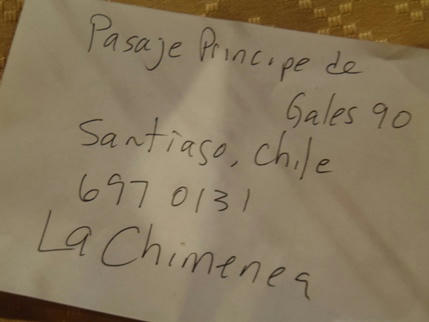 Pasaje Principe de
Gales 90
Santiago, Chile
697 0131
La Chimenea